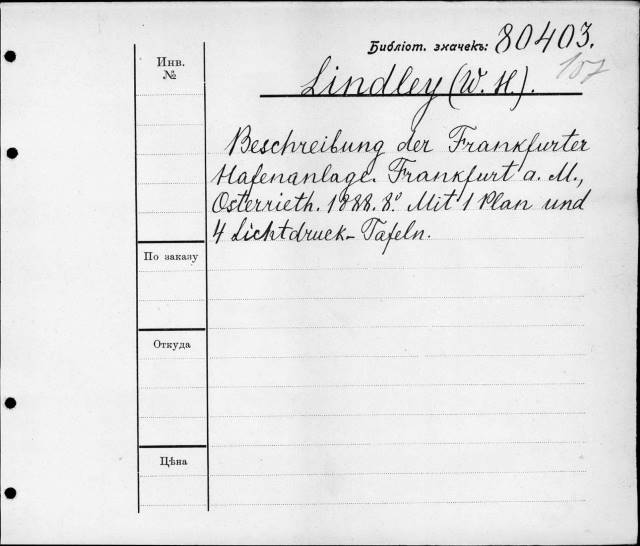 Библіот. значекъ: 80403.
107
Инв.
№
Lindley (W. H.).
Beschreibung der Frankfurter
Hafenanlage. Frankfurt a. M.,
Osterrieth. 1888. 8º Mit 1 Plan und
4 Lichtdruck-Tafeln.
По заказу
Откуда
Цѣна